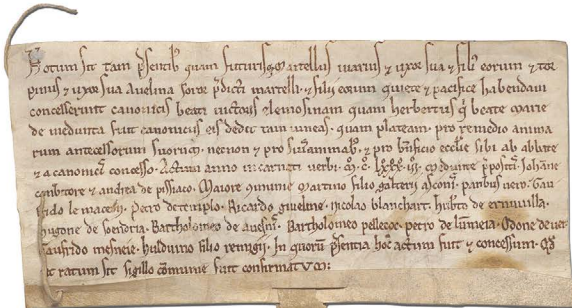 Notum sit tam p̄sentib; quam futuris q̄ martellus uarius ⁊ uxor sua ⁊ filii eorum ⁊ tor
pinus ⁊ uxor sua Auelina soror p̄dicti martelli ⁊ filii eorum quiete ⁊ pacifice habendam
concesserunt canonicis beati uictoris elemosinam quam herbertus q̄ beate marie
de medunta fuit canonicus eis dedit tam uineas. quam plateam. pro remedio anima
rum antecessorum suorum. necnon ⁊ pro suis animab;. ⁊ pro b̄nficio ecclie sibi ab abbate
⁊ a canonicis concesso. Actum anno incarnati uerbi. m̊. c̊. lxxx. iii. medunte p̄positi. Johane
scribtore ⁊ andrea de pissiaco. Maiore Martino filio galterii parib;
le Petro de templo. Ricardo guieline. nicolao blanchart. hub̄to de ernuuilla.
hugone de soendria. Bartholomeo de Bartholomeo pelleoc. petro de Odone de uer
Gaufrido mesneie. hulduino filio remigii. In quorū p̄sentia hoc actum fuit ⁊ concessum. Qd̄
ut ratum sit sigillo cōmunie fuit confirmatum;